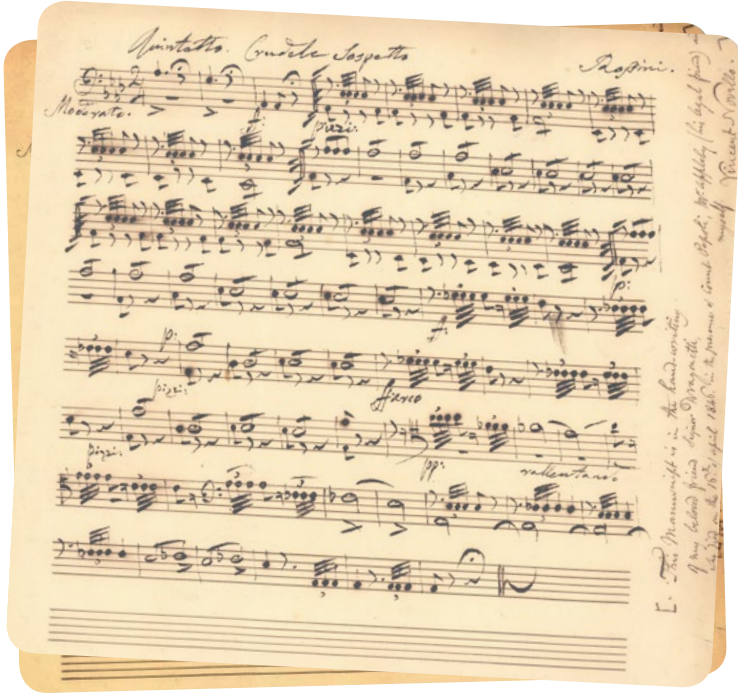 Quintetto. Crudele Sospetto
Rossini.
Moderato.
f:
pizzi:
p:
f:
p:
pizzi:
ff arco
pizzi:
pp:
rallentando
[. This Manuscript is in the hand-writing
of my beloved friend Signor Dragonetti,
who died on the 16th of April 1846. (in the presence of Count Pepoli, Mr Appleby (his legal friend) and
myself Vincent Novello.